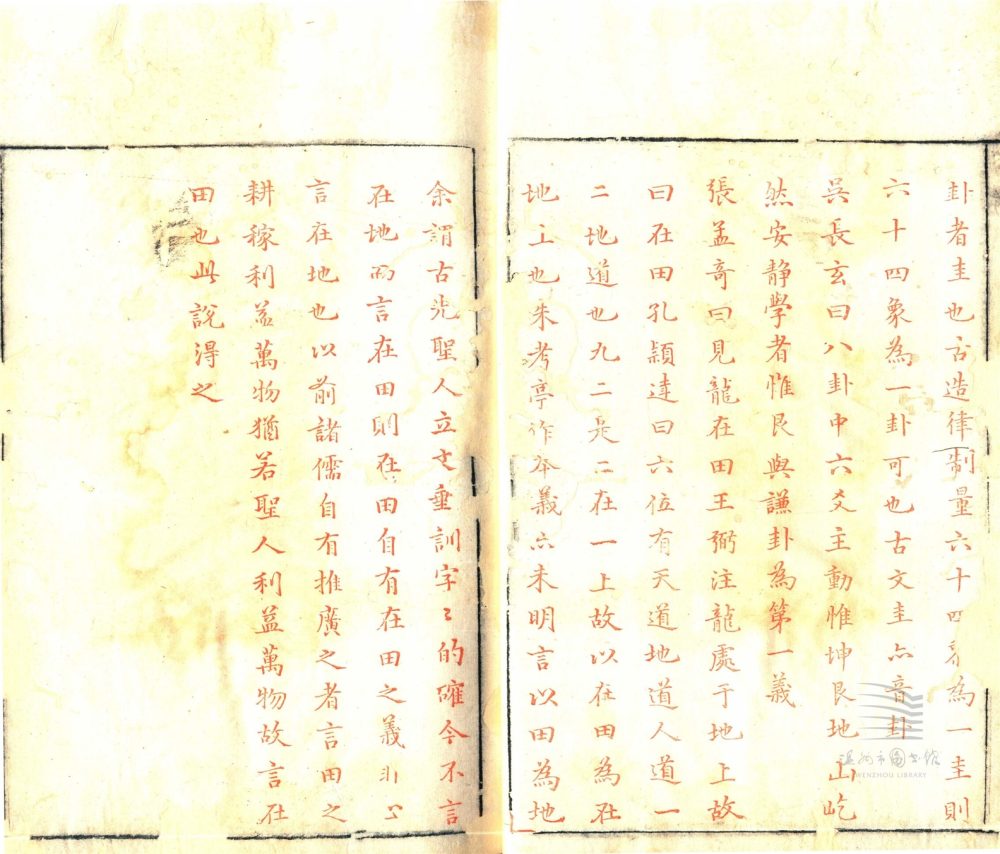 卦者圭也古造律制量六十四黍為一圭則
六十四象為一卦可也古文圭亦音卦
吳長玄曰八卦中六爻主動惟坤艮地山屹
然安靜學者惟艮與謙卦為第一義
張孟奇曰見龍在田王弼注龍處于地上故
曰在田孔穎達曰六位有天道地道人道一
二地道也九二是二在一上故以在田為在
地上也朱考亭作本義亦未明言以田為地
余謂古先聖人立文垂訓字〻的確今不言
在地而言在田則在田自有在田之義非以
言在地也以前諸儒自有推廣之者言田之
耕稼利益萬物猶若聖人利益萬物故言在
田也此說得之
溫州市圖書館
WENZHOU LIBRARY